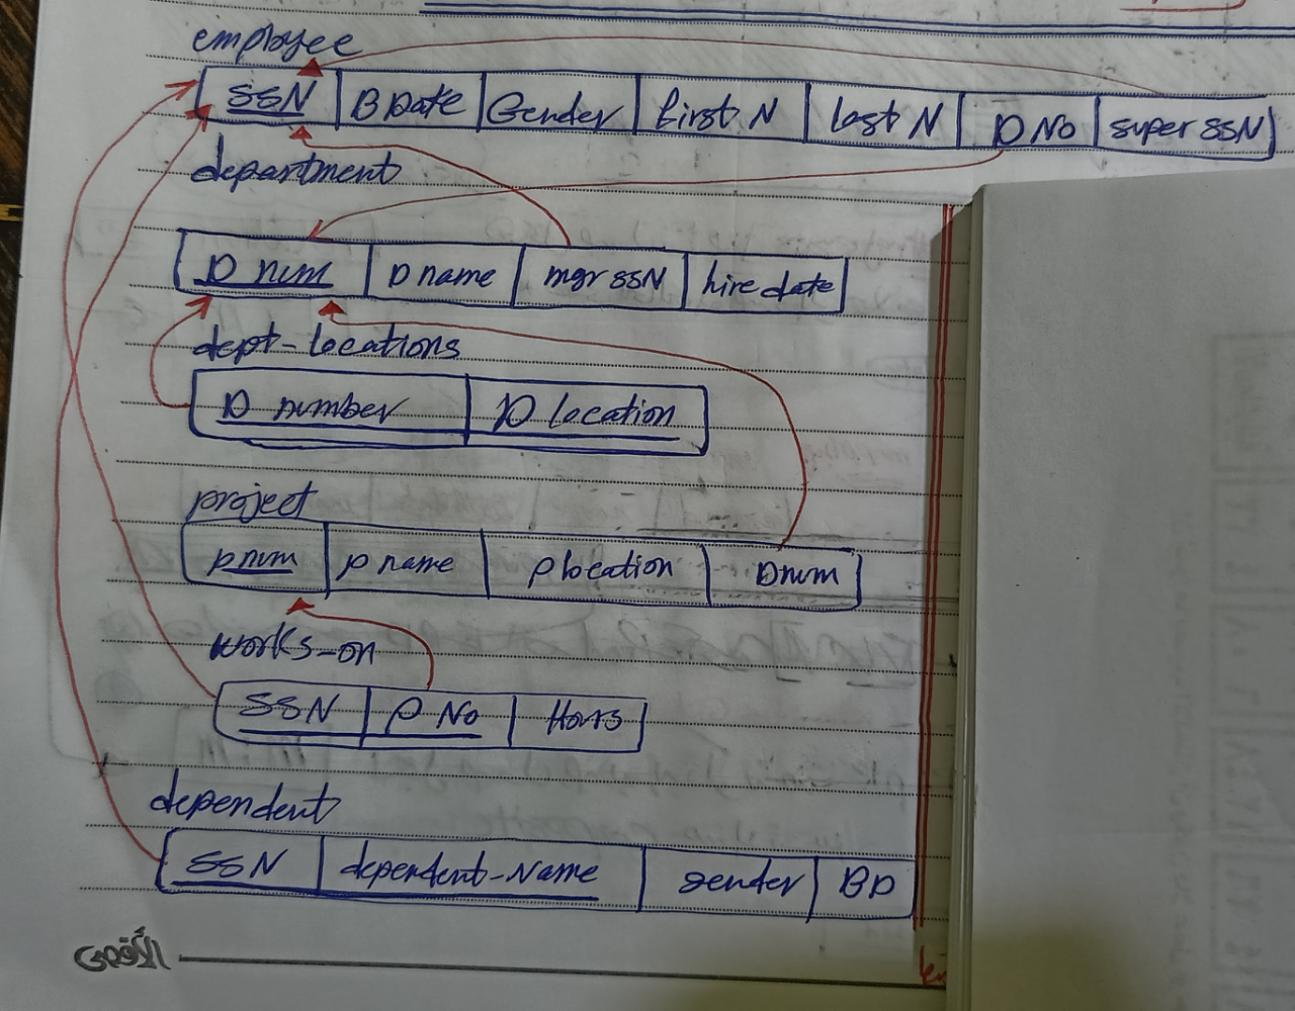 employee
SSN B Date Gender first N last N D No super SSN
department
D num D name mgr SSN hire date
dept-locations
D number D location
project
pnum p name plocation Dnum
works-on
SSN P No Hours
dependent
SSN dependent-Name gender BD
الأقصى